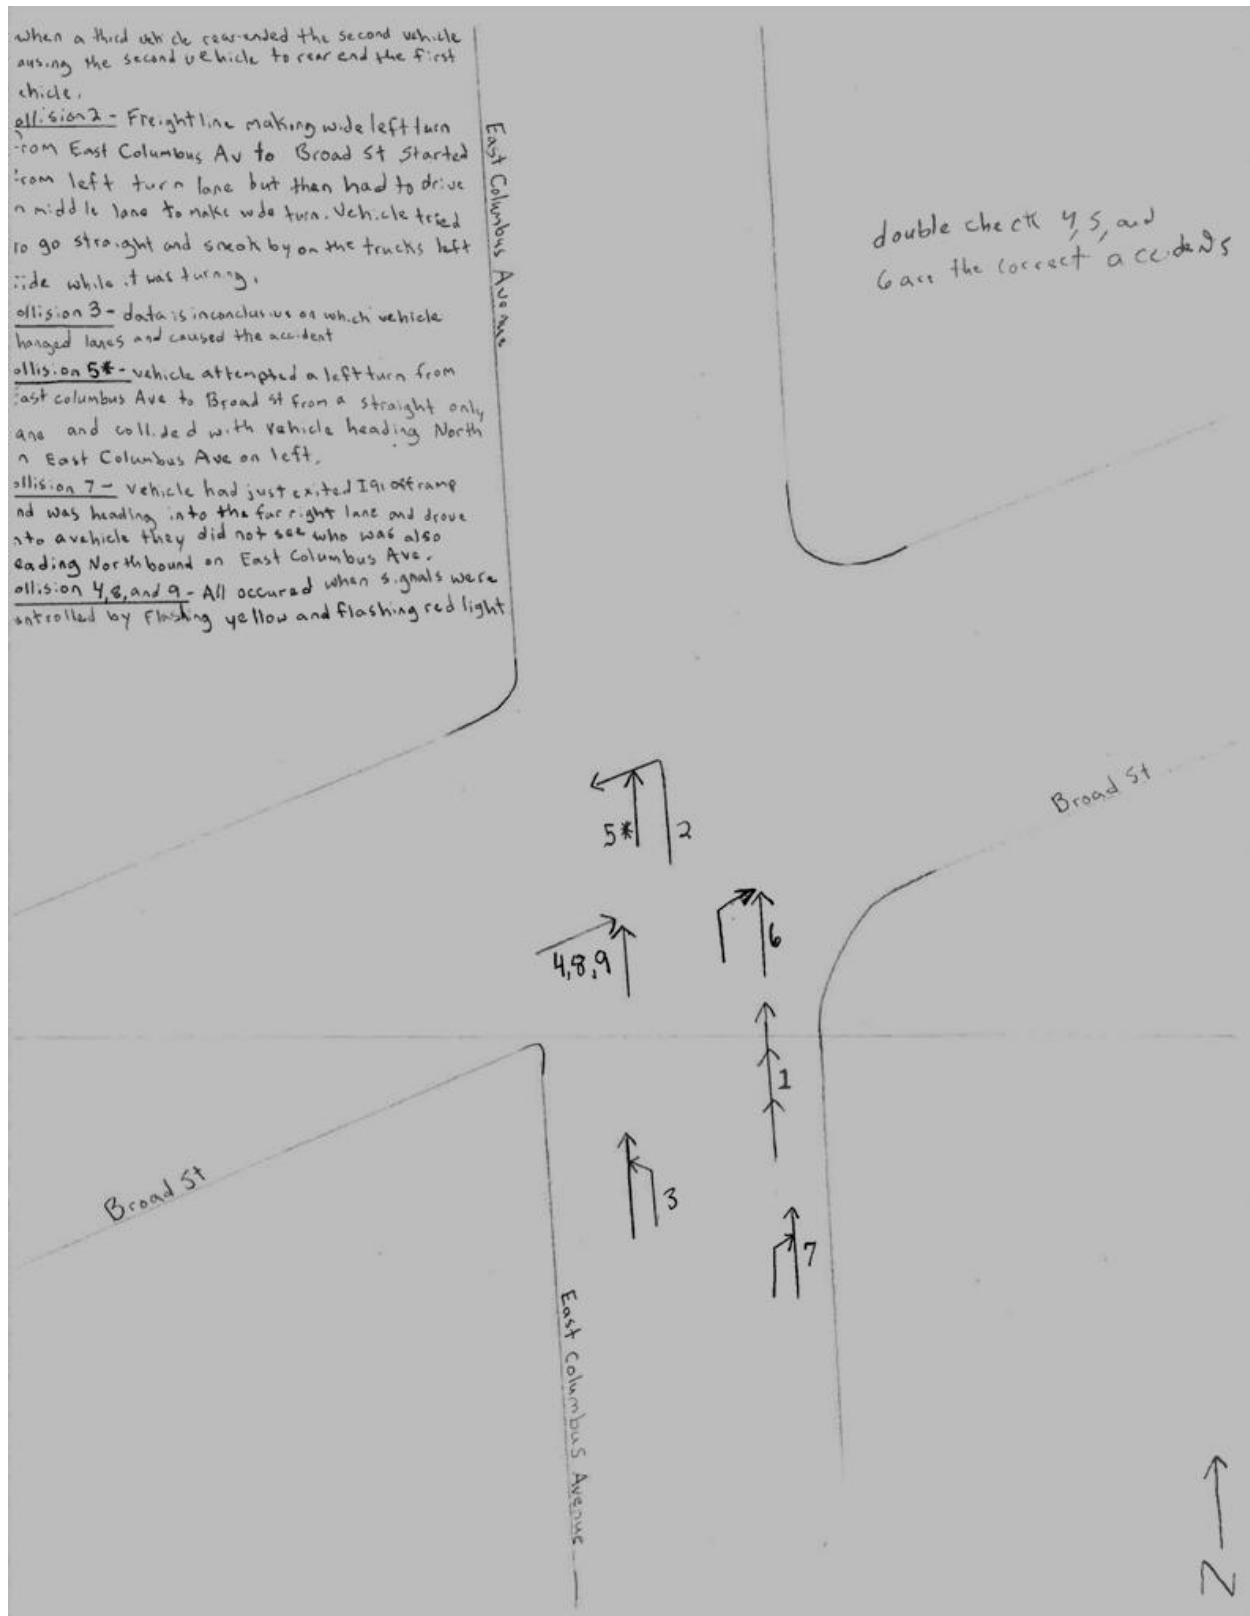 when a third vehicle rear-ended the second vehicle
ausing the second vehicle to rear end the first
ehicle.
ollision 2 - Freightline making wide left turn
from East Columbus Av to Broad St started
from left turn lane but then had to drive
n middle lane to make wide turn. Vehicle tried
to go straight and sneak by on the trucks left
side while it was turning.
ollision 3 - data is inconclusive on which vehicle
hanged lanes and caused the accident
ollision 5* - vehicle attempted a left turn from
East columbus Ave to Broad st from a straight only
ane and collided with vehicle heading North
n East Columbus Ave on left.
ollision 7 - Vehicle had just exited I91 off ramp
nd was heading into the far right lane and drove
nto a vehicle they did not see who was also
eading Northbound on East Columbus Ave.
ollision 4,8, and 9 - All occured when signals were
ontrolled by Flashing yellow and flashing red light
East Columbus Avenue
double check 4, 5, and
6 are the correct accidents
Broad St
5*
2
6
4,8,9
1
3
7
Broad St
East Columbus Avenue
N